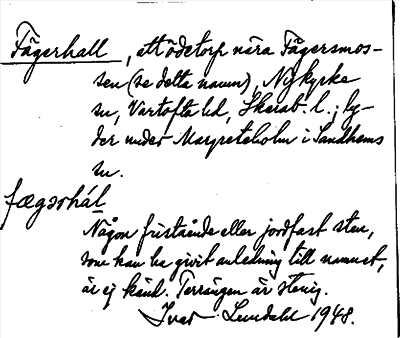 Fägerhall, ett ödetorp nära Fägersmos-
sen (se detta namn), Nykyrke
sn, Vartofta hd, Skarab. l.; ly-
der under Margreteholm i Sandhems
sn.
fægərhál
Någon fristående eller jordfast sten,
som kan ha givit anledning till namnet,
är ej känd. Terrängen är stenig.
Ivar Lundahl 1948.